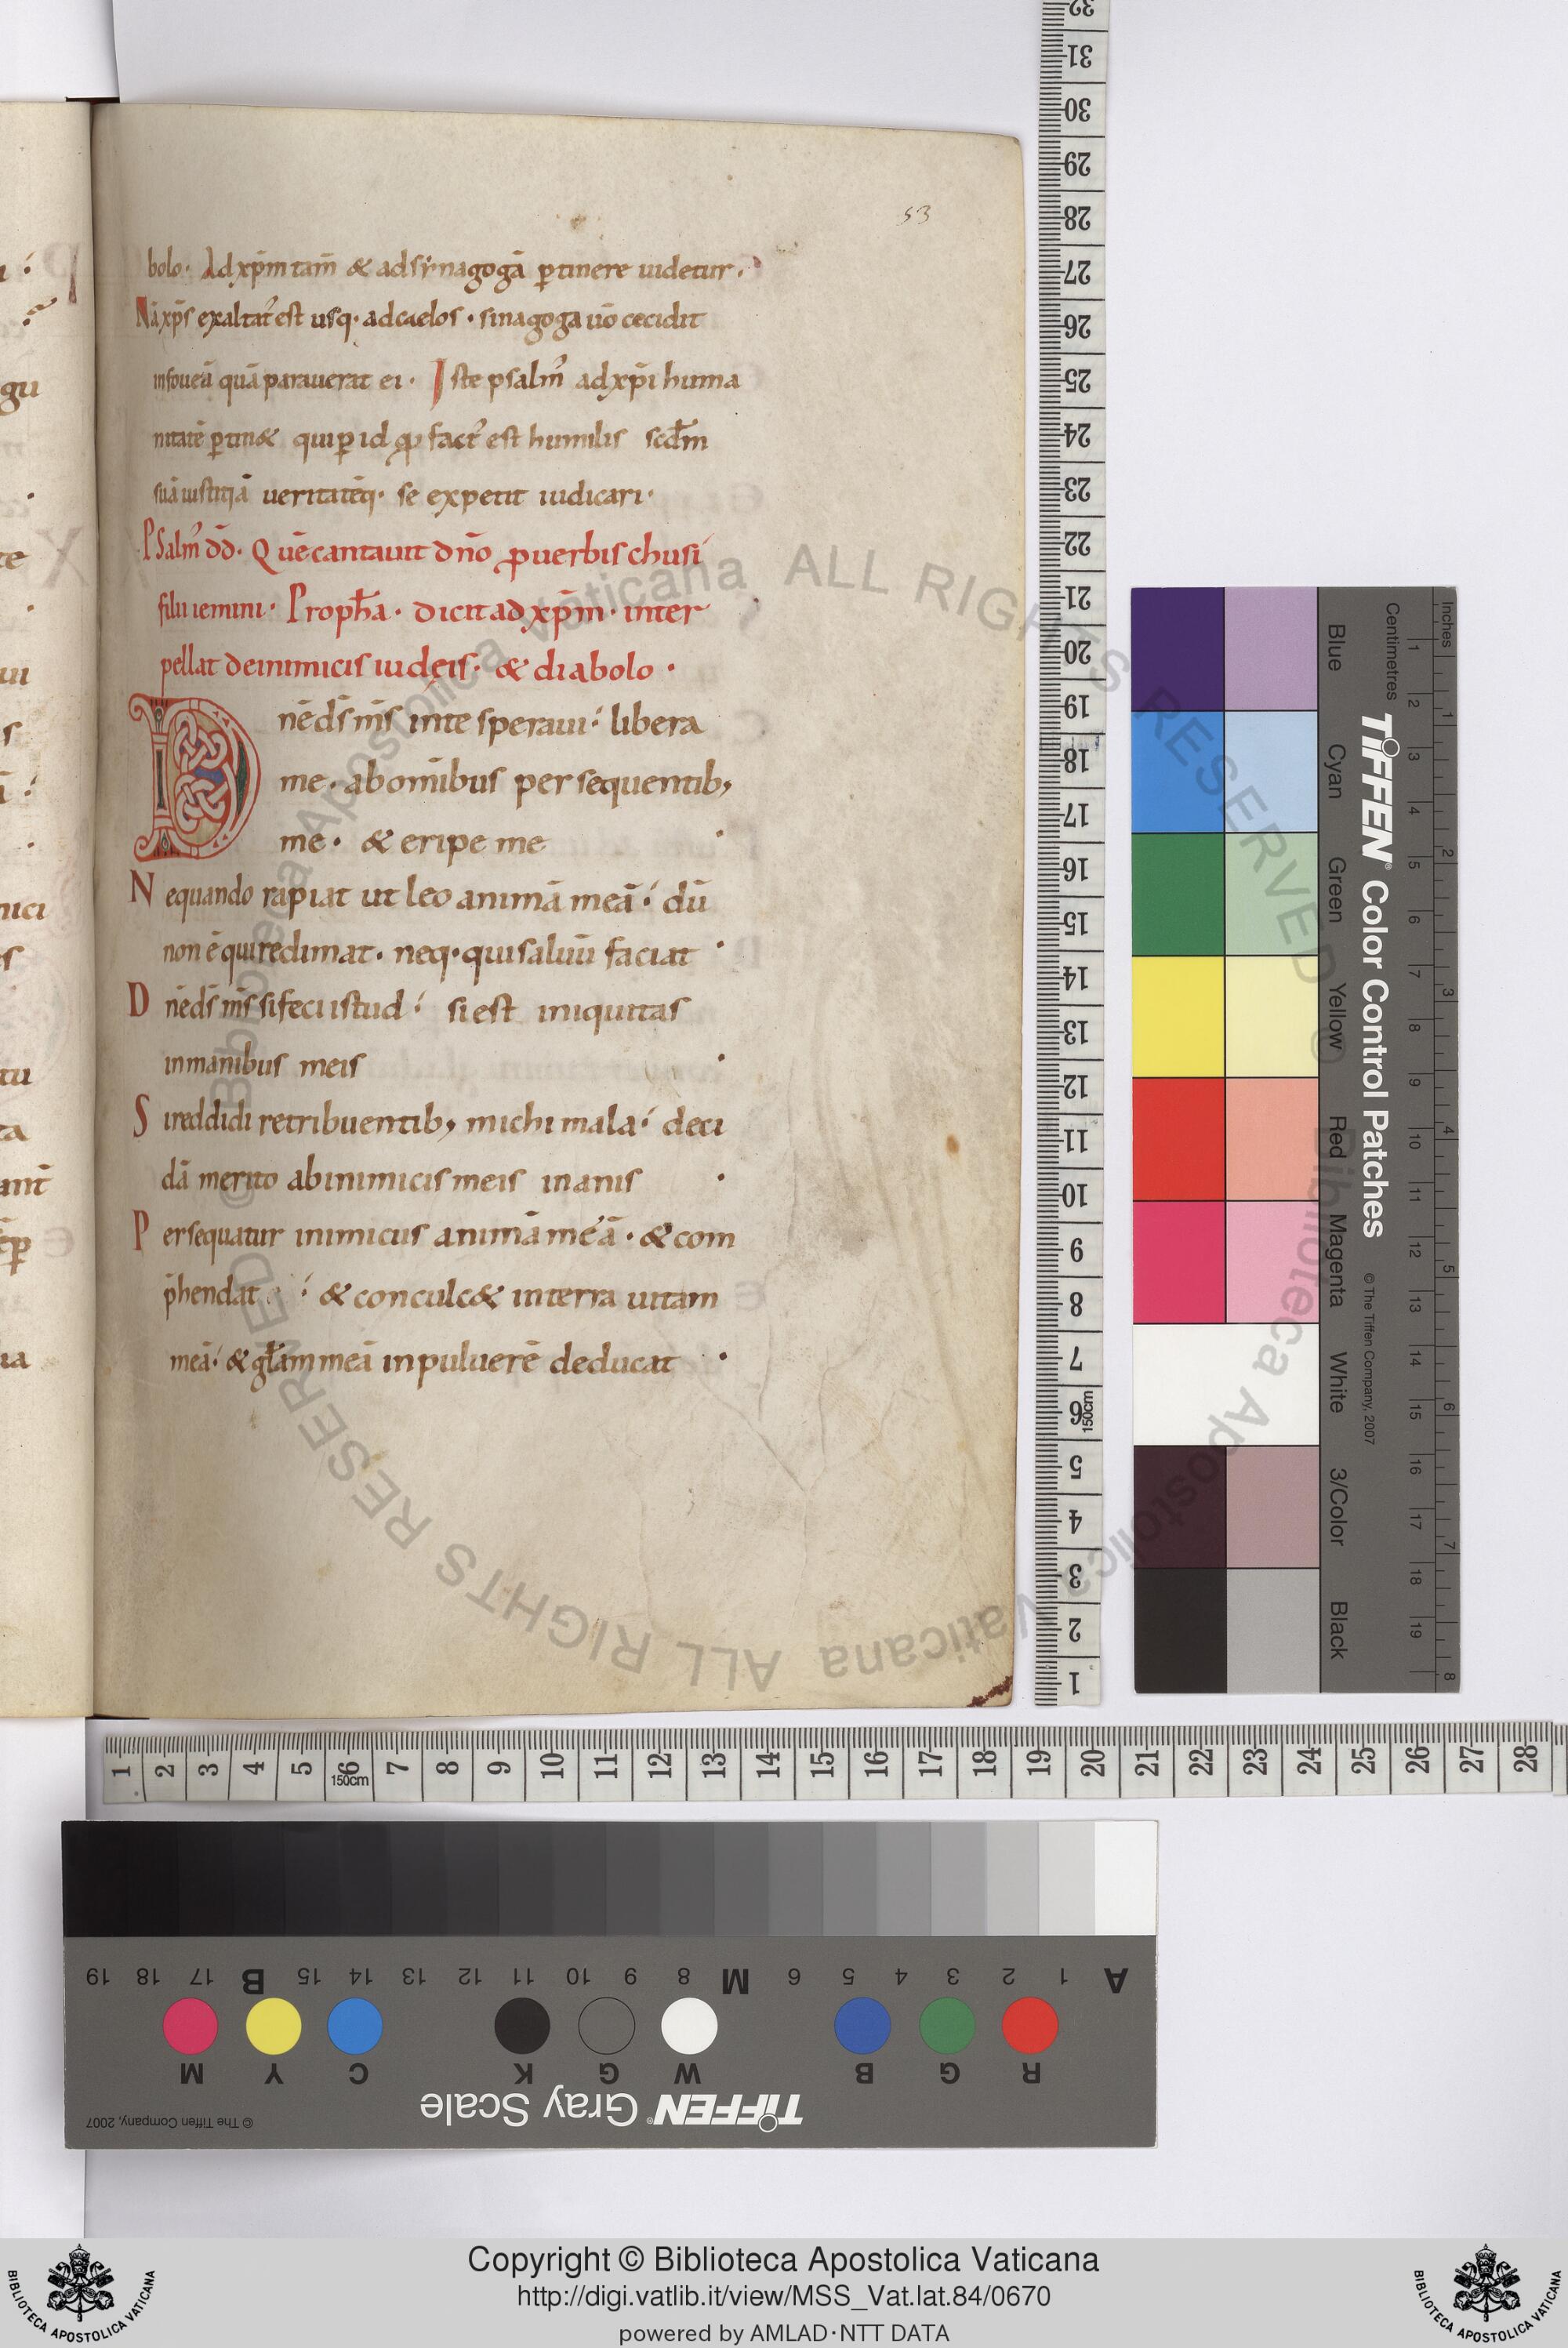 53
bolo· Ad xp̄m tam̄ & ad synagogā ꝑtinere uidetur·
Nā xp̄s exaltat᾽ est usq· ad caelos · sinagoga uō cecidit
in foueā quā parauerat ei· Iste psalm᾽ ad xp̄i huma
nitatē ꝑtin& qui ꝑ id qđ fact᾽ est humilis scđm
suā iustitiā ueritatēq· se expetit iudicari·
Psalm᾽ dd̄. Quē cantauit dn̄o ꝓ uerbis chusi
filii iemini· Proph̄a· dicit ad xp̄m· inter
pellat de inimicis iudęis· & diabolo ·
Dn̄e d̄s m̄s in te speraui·́ libera
me· ab om̄ibus persequentib;
me· & eripe me ·
Nequando rapiat ut leo animā meā·́ dū
non ē qui redimat· neq· qui saluū faciat ·
Dn̄e d̄s m̄s si feci istud·́ si est iniquitas
in manibus meis ·
Si reddidi retribuentib; michi mala·́ deci
dā merito ab inimicis meis inanis ·
Persequatur inimicus animā meā· & com
p̄hendat ·́ & conculc& in terra uitam
meā·́ & gl̄am meā in puluerē deducat ·
Inches
Centimetres
TIFFEN® Color Control Patches
© The Tiffen Company, 2007
Blue
Cyan
Green
Yellow
Red
Magenta
White
3/Color
Black
TIFFEN® Gray Scale
© The Tiffen Company, 2007
A 1 2 3 4 5 6 M 8 9 10 11 12 13 14 15 B 17 18 19
R G B W G K C Y M
© Biblioteca Apostolica Vaticana ALL RIGHTS RESERVED
© Biblioteca Apostolica Vaticana ALL RIGHTS RESERVED
Copyright © Biblioteca Apostolica Vaticana
http://digi.vatlib.it/view/MSS_Vat.lat.84/0670
powered by AMLAD·NTT DATA
BIBLIOTECA APOSTOLICA VATICANA
BIBLIOTECA APOSTOLICA VATICANA